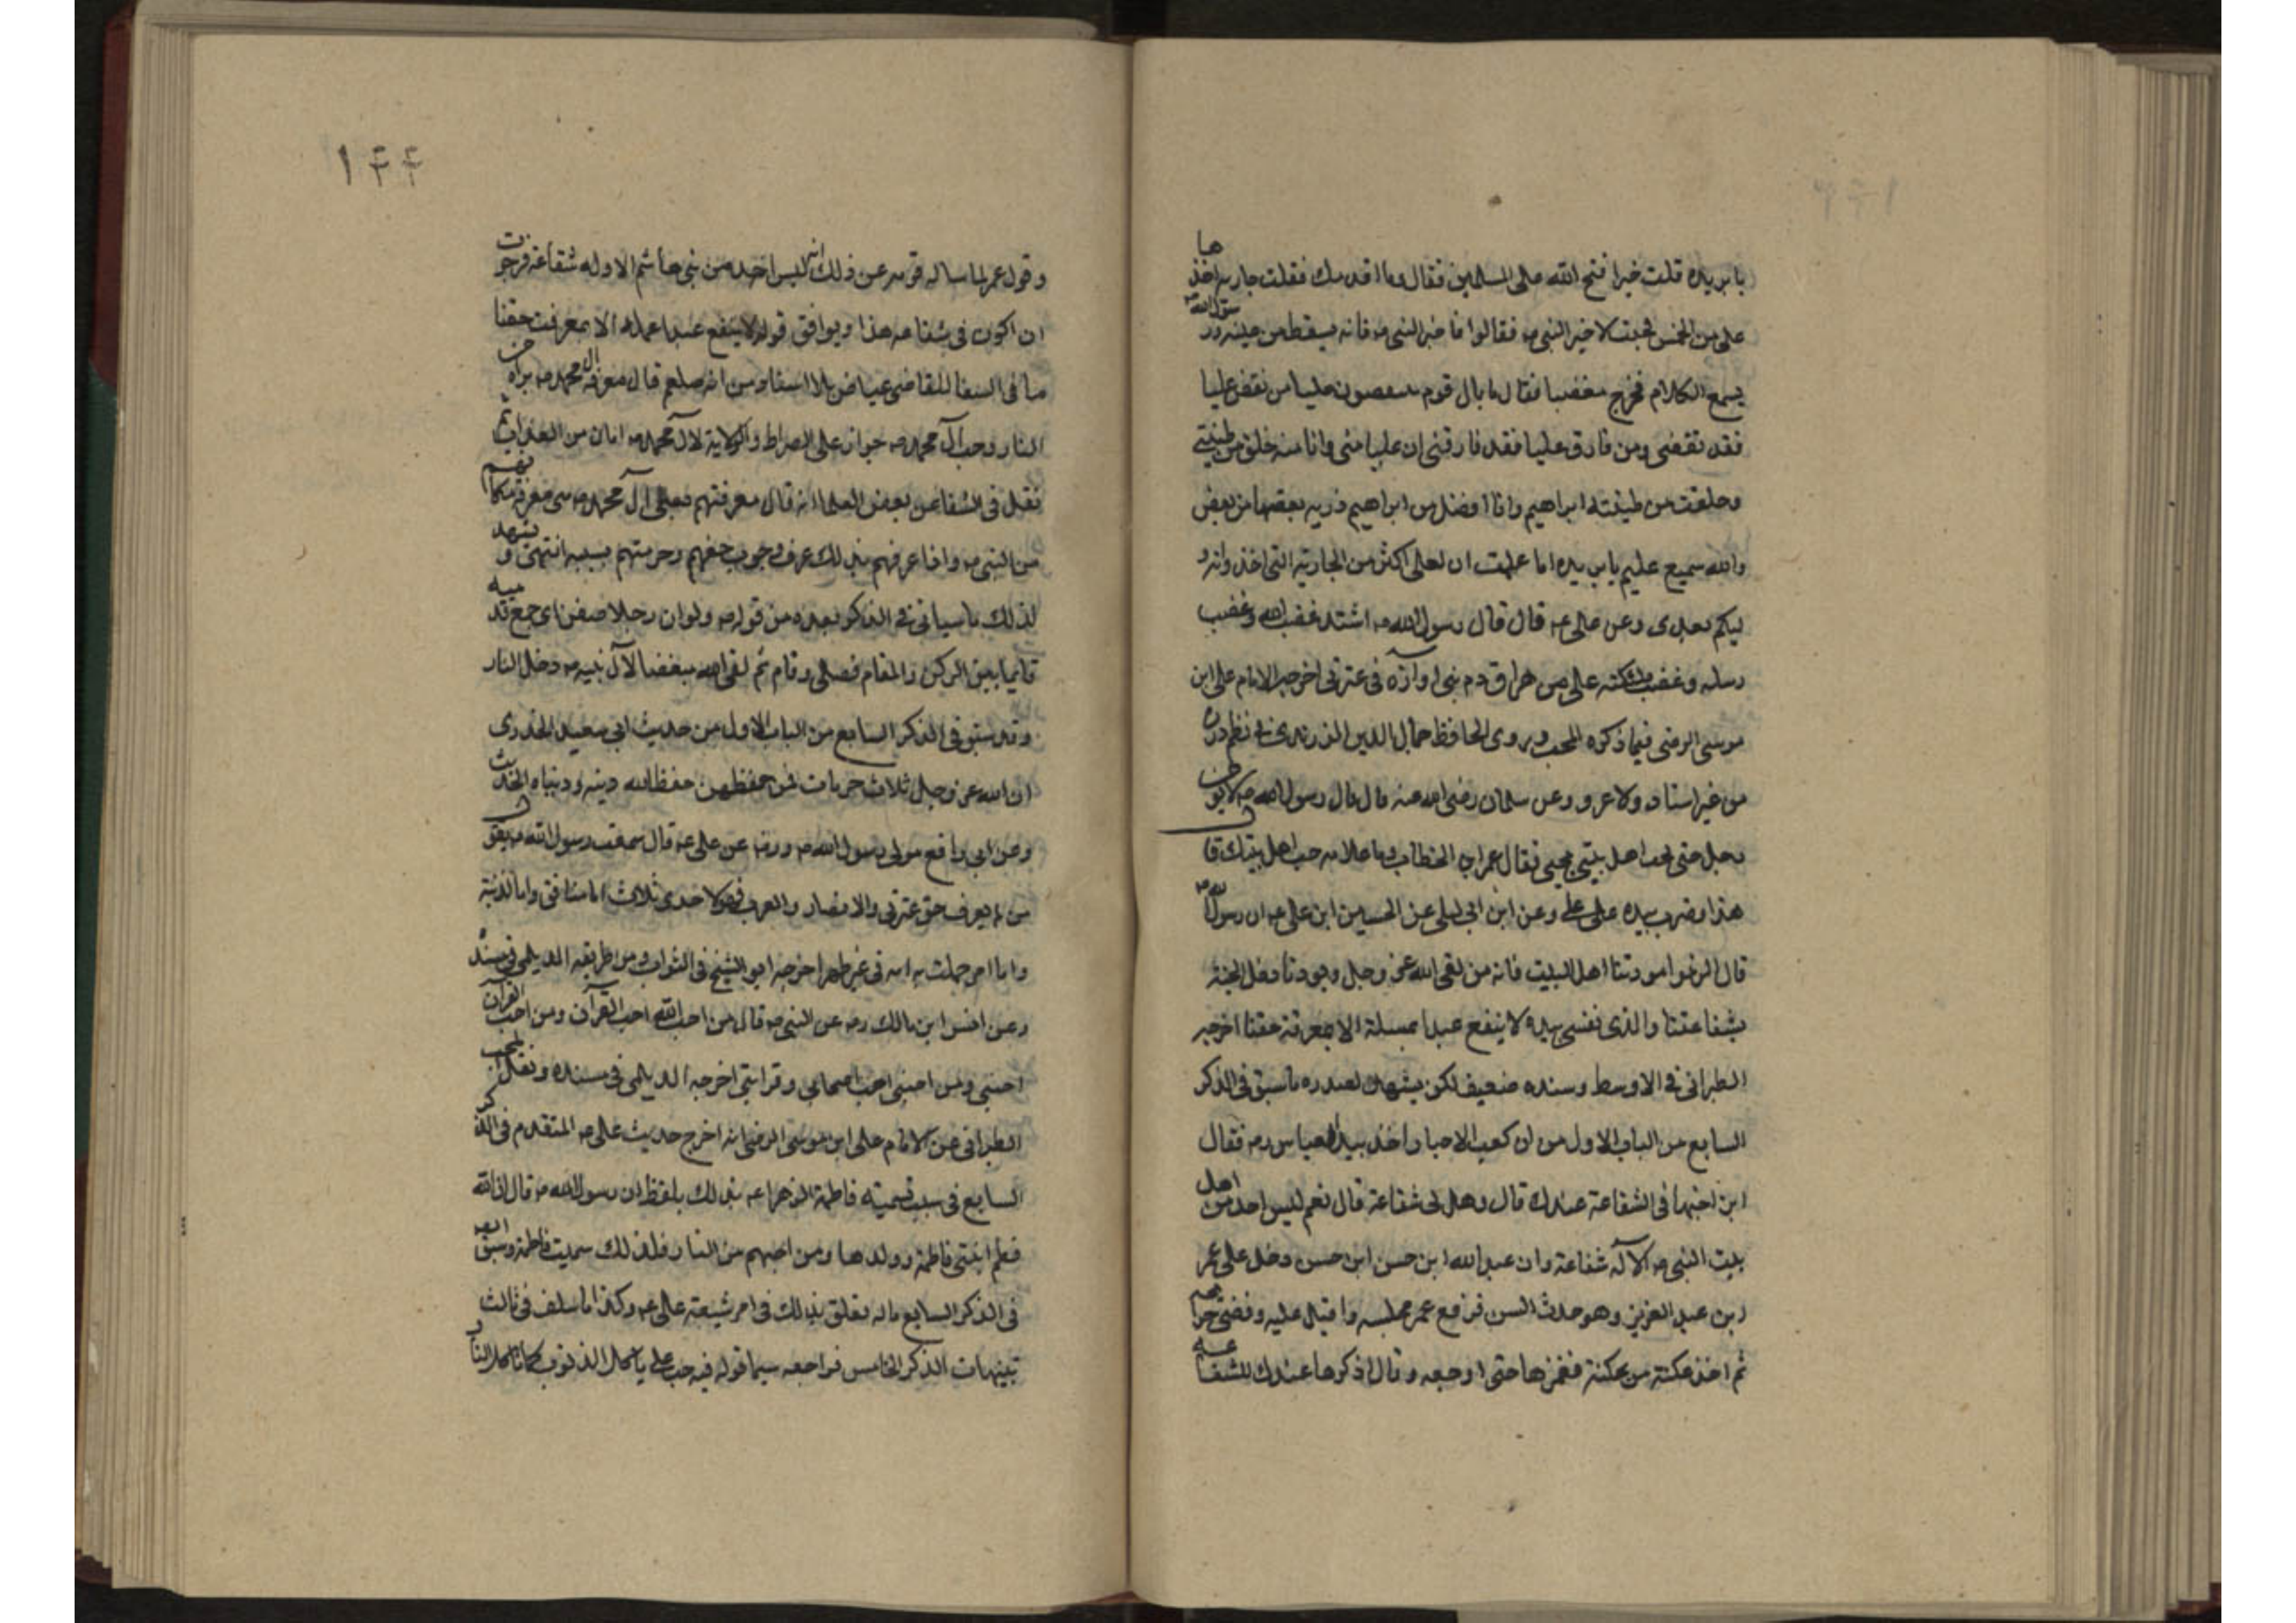 يا بريده قلت خيرا فتح الله على المسلمين فقال وما اقدمك فقلت جاريه اخذها
على من الخمس فجئت لاخبر النبي ص فقالوا فاخبر النبي ص فانه يسقط من عينه ورسول الله ص
يسمع الكلام فخرج مغضبا فقال ما بال قوم عليا من نقض عليا
فقد نقضني ومن فارق عليا فقد فارقني ان عليا مني وانا منه خلق من طينتي
وخلقت من طينته ابراهيم وانا افضل من ابراهيم ذريه بعضها من بعض
والله سميع عليم يا بريده اما علمت ان لعلى اكثر من الجارية التي اخذ وانه و
ليكم بعدى وعن على ع قال قال رسول الله ص اشتد غضب الله وغضب
رسله وغضب ملئكته على من هراق دم نبى او آذه في عترتى اخرجه الامام على ابن
موسى الرضى فيما ذكره المحب ويروى الحافظ جمال الدين الزرندى في نظم درره
من غير اسناد ولا عزو وعن سلمان رضى الله عنه قال قال رسول الله ص لا يؤمن
رجل حتى يحب اهل بيتى بحبى فقال عمر ابن الخطاب وما علامه حب اهل بيتك قال
هذا وضرب بيده على على وعن ابن ابى ليلى عن الحسين ابن على ع ان رسول الله ص
قال الزموا مودتنا اهل البيت فانه من لقى الله عز وجل وهو ودنا دخل الجنة
بشفاعتنا والذى نفسى بيده لا ينفع عبدا عمله الا بمعرفة حقنا اخرجه
الطبرانى في الاوسط وسنده ضعيف لكن يشهد لصدره ما سبق في الذكر
السابع من الباب الاول من ان كعب الاحبار اخذ بيد العباس رم فقال
ابن اختبها في الشفاعة عندك قال وهل لى شفاعة قال نعم ليس احد من اهل
بيت النبي ص الا له شفاعة وان عبد الله ابن حسن ابن حسن دخل على عمر
ابن عبد العزيز وهو حدث السن فرفع عمر مجلسه واقبل عليه وقضى حوائجهم
ثم اخذ عكنة من عكنه فغمزها حتى اوجعه وقال اذكرها عندك للشفاعه
وقول عمر لما ساله قومه عن ذلك انه ليس احد من بنى هاشم الا وله شفاعة فرجوت
ان اكون في شفاعه هذا ويوافق قوله لا ينفع عبدا عمله الا بمعرفت حقنا
ما فى الشفا للقاضى عياض بلا اسناد من انه صلعم قال معرفة ال محمد ص براة من
النار وحب آل محمد ص جواز على الصراط والولاية لآل محمد ص امان من العذاب ثم
نقل فى الشفا عن بعض العلما انه قال معرفتهم يعنى آل محمد ص هى معرفة مكانهم
من النبى ص واذا عرفهم بذلك عرف وجوب حقهم وحرمتهم بسببه انتهى ويشهد
لذلك ما سياتى في الذكر بعده من قوله ص ولو ان رجلا صفن اى جمع قدميه
قايما بين الركن والمقام فصلى وقام ثم لقى الله مبغضا لآل نبيه ص دخل النار
وقد سبق في الذكر السابع من الباب الاول من حديث ابى سعيد الخدرى
ان لله عز وجل ثلاث حرمات فمن حفظهن حفظ الله دينه ودنياه الحديث
وعن ابى رافع مولى رسول الله ص ورضه عن على ع قال سمعت رسول الله ص يقول
من لم يعرف حق عترتى والانصار والعرب فهو لاحدى ثلاث اما منافق واما لزنية
واما امر حملت به امه في غير طهر اخرجه ابو الشيخ في الثواب ومن طريقه الديلمى في مسنده
وعن انس ابن مالك رم عن النبى ص قال من احب الله احب القرآن ومن احب القرآن
احبنى ومن احبنى احب اصحابى وقرابتى اخرجه الديلمى في مسنده ونقل المحب
الطبرانى عن الامام على ابن موسى الرضى انه اخرج حديث على ع المتقدم في الذكر
السابع في سبب تسمية فاطمة الزهرا ع بذلك بلفظ ان رسول الله ص قال ان الله
فطم ابنتى فاطمة وولدها ومن احبهم من النار فلذلك سميت فاطمة وسبق ايضه
في الذكر السابع ما له تعلق بذلك في امر شيعة على ع وكذا ما سلف في ثالث
تنبيهات الذكر الخامس فراجعه سيما قوله فيه حب على ياكل الذنوب كما تاكل النار